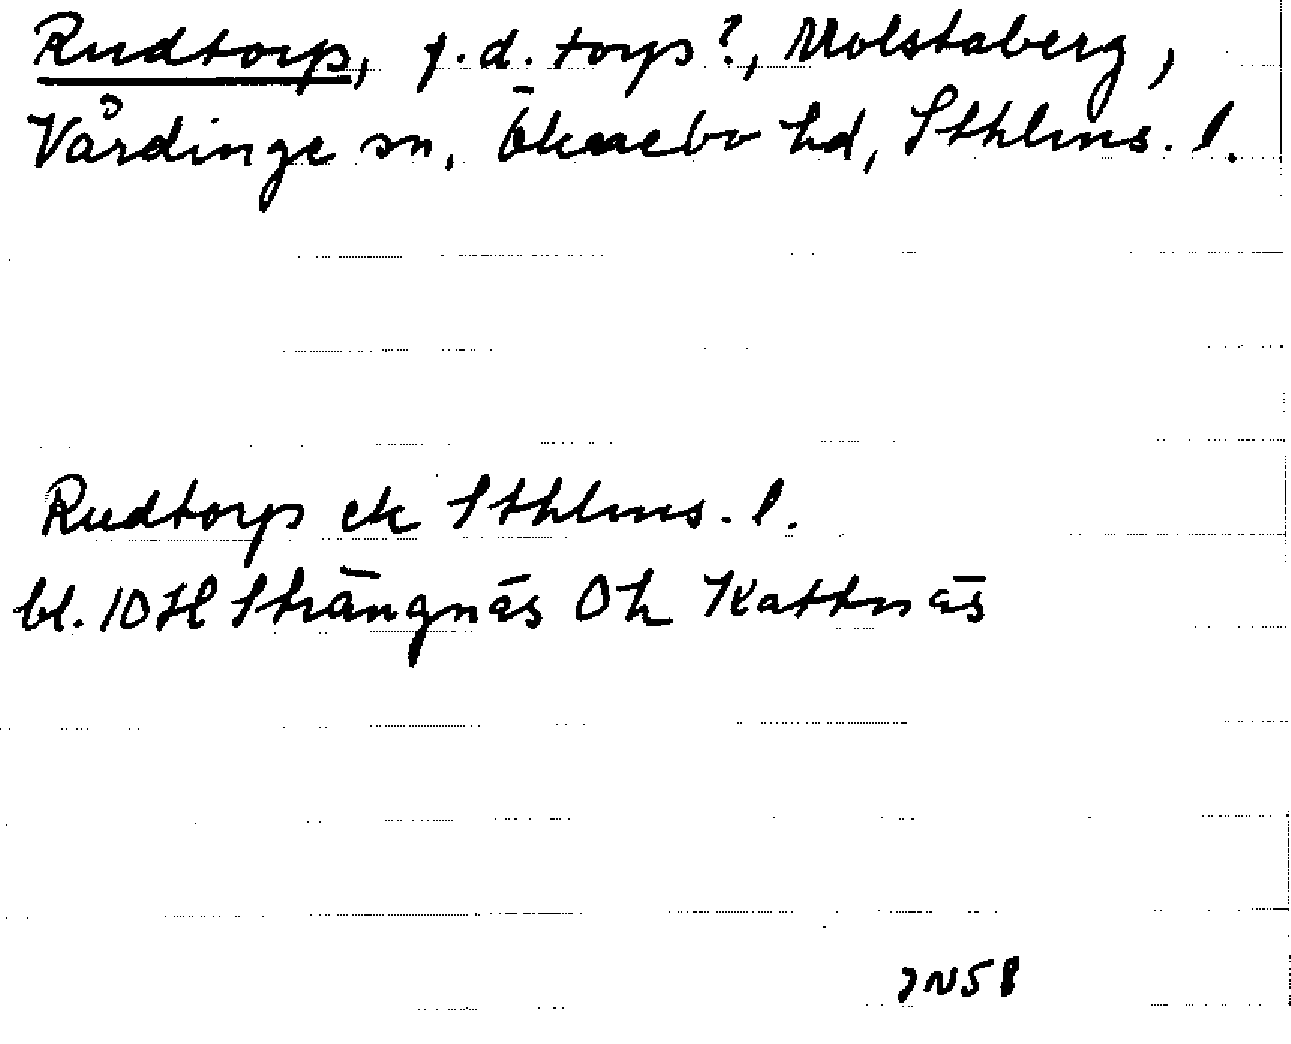 Rudtorp, f.d. torp?, Molstaberg,
Vårdinge sn, Öknebo hd, Sthlms. l.
Rudtorp ek Sthlms. l.
bl. 10H Strängnäs Oh Kattnäs
JN58